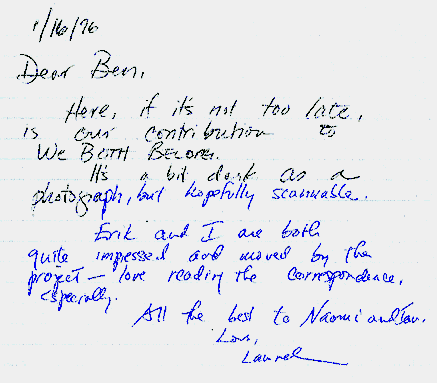 1/16/96
Dear Ben,
Here, if it's not too late,
is our contribution to
WE BOTH BELONG.
It's a bit dark as a
photograph, but hopefully scannable.
Erik and I are both
quite impressed and moved by the
project — love reading the correspondence,
especially.
All the best to Naomi and
Love,
Laurel